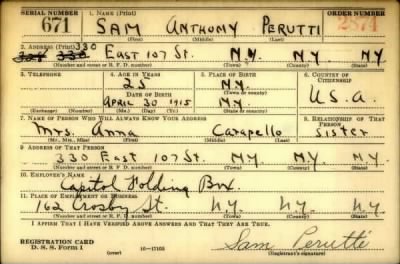 SERIAL NUMBER 1. NAME (Print) ORDER NUMBER
671 SAM ANTHOMY PERUTTI 2874
(First) (Middle) (Last)
2. ADDRESS (Print) 330
328 338 EAST 107 ST. N.Y. N.Y. N.Y.
(Number and street or R. F. D. number) (Town) (County) (State)
3. TELEPHONE 4. AGE IN YEARS 5. PLACE OF BIRTH 6. COUNTRY OF CITIZENSHIP
25 N.Y.
DATE OF BIRTH (Town or county)
APRIL 30 1915 N.Y. U.S.A.
(Exchange) (Number) (Mo.) (Day) (Yr.) (State or country)
7. NAME OF PERSON WHO WILL ALWAYS KNOW YOUR ADDRESS 8. RELATIONSHIP OF THAT PERSON
Mrs. Anna Carapello Sister
(Mr., Mrs., Miss) (First) (Middle) (Last)
9. ADDRESS OF THAT PERSON
330 East 107 St. N.Y. N.Y. N.Y.
(Number and street or R. F. D. number) (Town) (County) (State)
10. EMPLOYER'S NAME
Capitol Folding Box.
11. PLACE OF EMPLOYMENT OR BUSINESS
162 Crosby St. N.Y. N.Y. N.Y.
(Number and street or R. F. D. number) (Town) (County) (State)
I AFFIRM THAT I HAVE VERIFIED ABOVE ANSWERS AND THAT THEY ARE TRUE.
REGISTRATION CARD
D. S. S. Form 1 16-17105 Sam Perutti
(Registrant's signature)